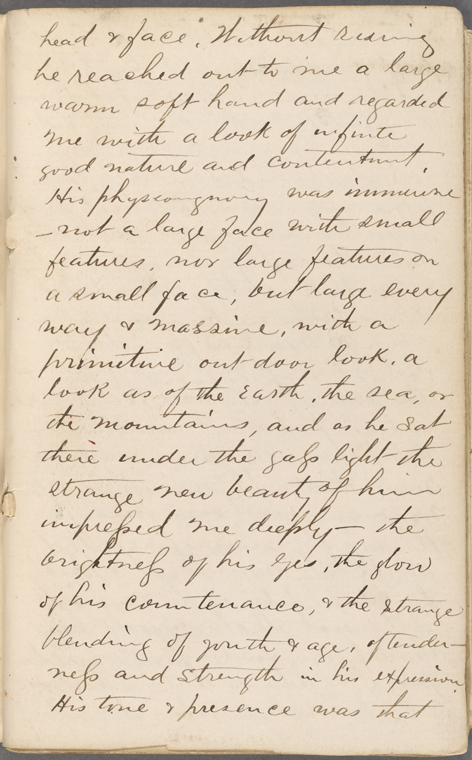 head & face. Without rising
he reached out to me a large
warm soft hand and regarded
me with a look of infinite
good nature and contentment.
His physiognomy was immense
– not a large face with small
features, nor large features on
a small face, but large every
way & massive, with a
primitive out door look, a
look as of the Earth, the sea, or
the mountains, and as he sat
there under the gass light the
strange new beauty of him
impressed me deeply – the
brightness of his eyes, the glow
of his countenance, & the strange
blending of youth & age, of tender-
ness and strength in his expression.
His tone & presence was that